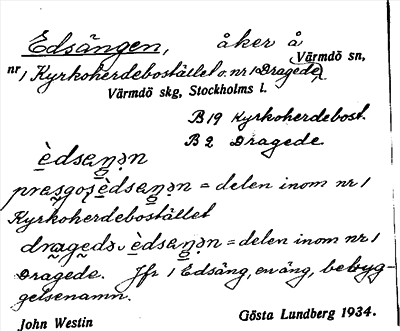 Edsängen, åker å
Värmdö sn,
nr 1 Kyrkoherdebostället o. nr 1 Dragede,
Värmdö skg, Stockholms l.
B 19 Kyrkoherdebost.
B 2 Dragede.
= delen inom nr 1
Kyrkoherdebostället
= delen inom nr 1
Dragede. Jfr 1 Edsäng, en äng, bebyg-
gelsenamn.
John Westin Gösta Lundberg 1934.